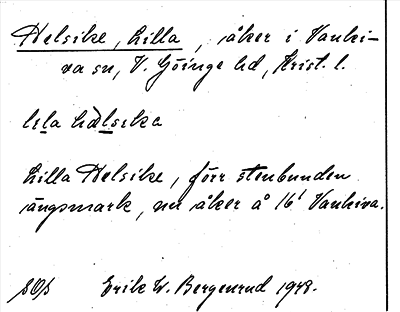 Helsike, Lilla, åker i Vanki-
va sn, V. Göinge hd, Krist. l.
lila hælsika
Lilla Helsike, förr stenbunden
ängsmark, nu åker å 16¹ Vankiva.
Erik W. Bergenrud 1948.